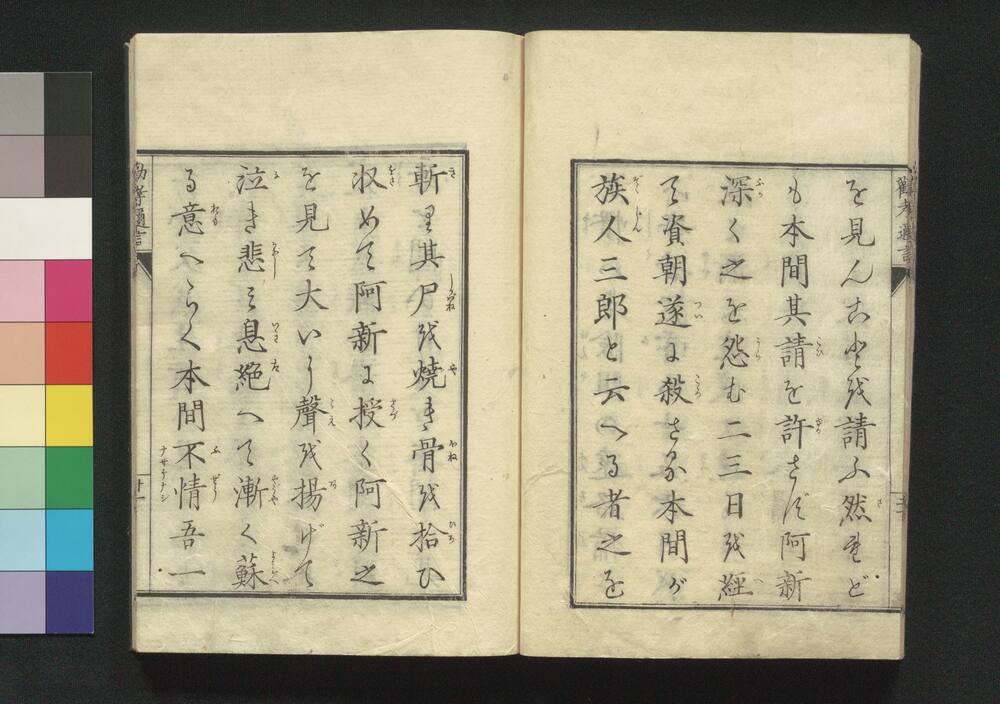 を見んことを請ふ然れど
も本間其請を許さず阿新
深く之を怨む二三日を經
て資朝遂に殺さる本間が
族人三郎と云へる者之を
斬り其尸を燒き骨を拾ひ
收めて阿新に授く阿新之
を見て大いに聲を揚げて
泣き悲み息絶へて漸く蘇
る意へらく本間不情吾一